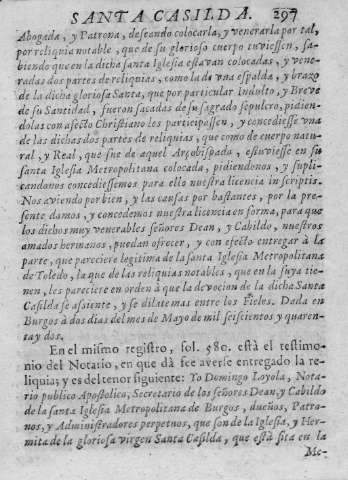 SANTA CASILDA. 297
Abogada, y Patrona, deseando colocarla, y venerarla por tal,
por reliquia notable, que de su glorioso cuerpo tuviessen, sa-
biendo que en la dicha santa Iglesia estavan colocadas, y vene-
radas dos partes de reliquias, como la de vna espalda, y brazo
de la dicha gloriosa Santa, que por particular Indulto, y Breve
de su Santidad, fueron sacadas de su sagrado sepulcro, pidien-
dolas con afecto Christiano les participassen, y concediesse vna
de las dichas dos partes de reliquias, que como de cuerpo natu-
ral, y Real, que fue de aquel Arçobispado, estuviesse en su
santa Iglesia Metropolitana colocada, pidiendonos, y supli-
candonos concediessemos para ello nuestra licencia in scriptis.
Nos aviendo por bien, y las causas por bastantes, por la pre-
sente damos, y concedemos nuestra licencia en forma, para que
los dichos muy venerables señores Dean, y Cabildo, nuestros
amados hermanos, puedan ofrecer, y con efecto entregar à la
parte, que pareciere legitima de la santa Iglesia Metropolitana
de Toledo, la que de las reliquias notables, que en la suya tie-
nen, les pareciere en orden à que la devocion de la dicha Santa
Casilda se assiente, y se dilate mas entre los Fieles. Dada en
Burgos à dos dias del mes de Mayo de mil seiscientos y quaren-
ta y dos.
En el mismo registro, fol. 580. està el testimo-
nio del Notario, en que dà fee averse entregado la re-
liquia, y es del tenor siguiente: Yo Domingo Loyola, Nota-
rio publico Apostolico, Secretario de los señores Dean, y Cabildo
de la santa Iglesia Metropolitana de Burgos, dueños, Patro-
nos, y Administradores perpetuos, que son de la Iglesia, y Her-
mita de la gloriosa virgen Santa Casilda, que està sita en la
Me-